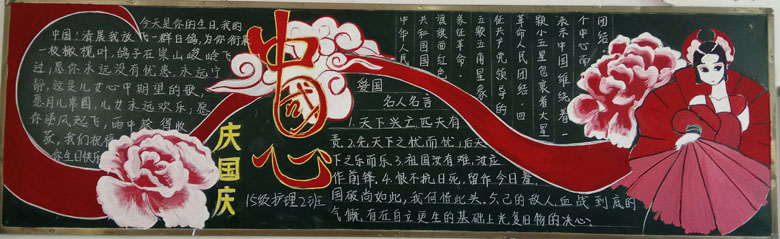 今天是你的生日,我的
中国!清晨我放飞一群日鸽,为你衔来
一枚橄榄叶,鸽子在崇山峻岭飞
过,愿你永远没有忧患,永远宁
静,这是儿女心中期里的歌,
愿月儿常圆,儿女永远欢乐;愿
你逆风起飞,雨中获得收
获。我们祝福
你生日快乐
庆国庆
15级护理2班
中国心
团结
个中心而
表示中国维统着一
颗小五星包裹着大星
革命人民团结四
征共产党领导的
五颗五角星象
象征革命
旗旗面红色
共和国国
中华人民
爱国
名人名言
1.天下兴亡,匹夫有
责.2.先天下之忧而忧;后天
下之乐而乐.3.祖国没有难,汝应
作前锋.4.恨不抗日死,留作今日羞.
国破尚如此,我何惜此头.5.己的敌人血战到底的
气慨,有在自立更生的基础上光复旧物的决心。